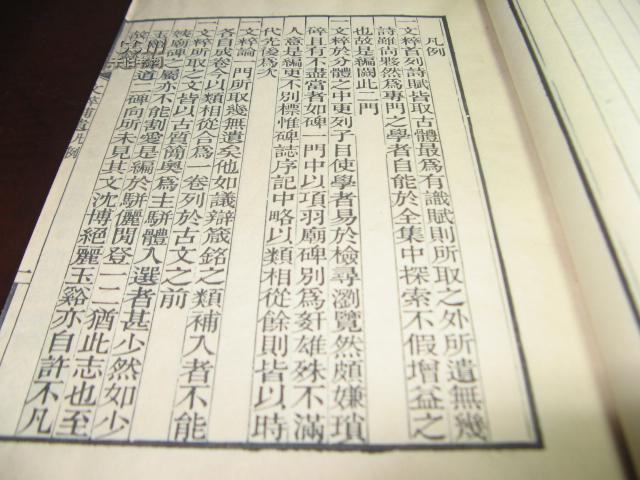 凡例
一文粹首列詩賦皆取古體最爲有識賦則所取之外所遺無幾
詩雖尚夥然爲專門之學者自能於全集中探索不假增益之
也故是編闕此二門
一文粹於分體之中更列子目使學者易於檢尋瀏覽然頗嫌瑣
碎且有不盡當者如碑一門中以項羽廟碑別爲奸雄殊不滿
人意是編更不別標惟碑誌序記中略以類相從餘則皆以時
代先後爲次
一文粹論一門所取幾無遺矣他如議辯箴銘之類補入者不能
各自成卷今以類相從合爲一卷列於古文之前
一文粹所取之文皆以古質簡奧爲主駢體入選者甚少然如少
姨廟碑之屬亦不能割愛是編於駢儷閒登一二猶此志也至
玉
道二碑向所未見其文沈博絕麗玉谿亦自許不凡
文粹補遺凡例
一